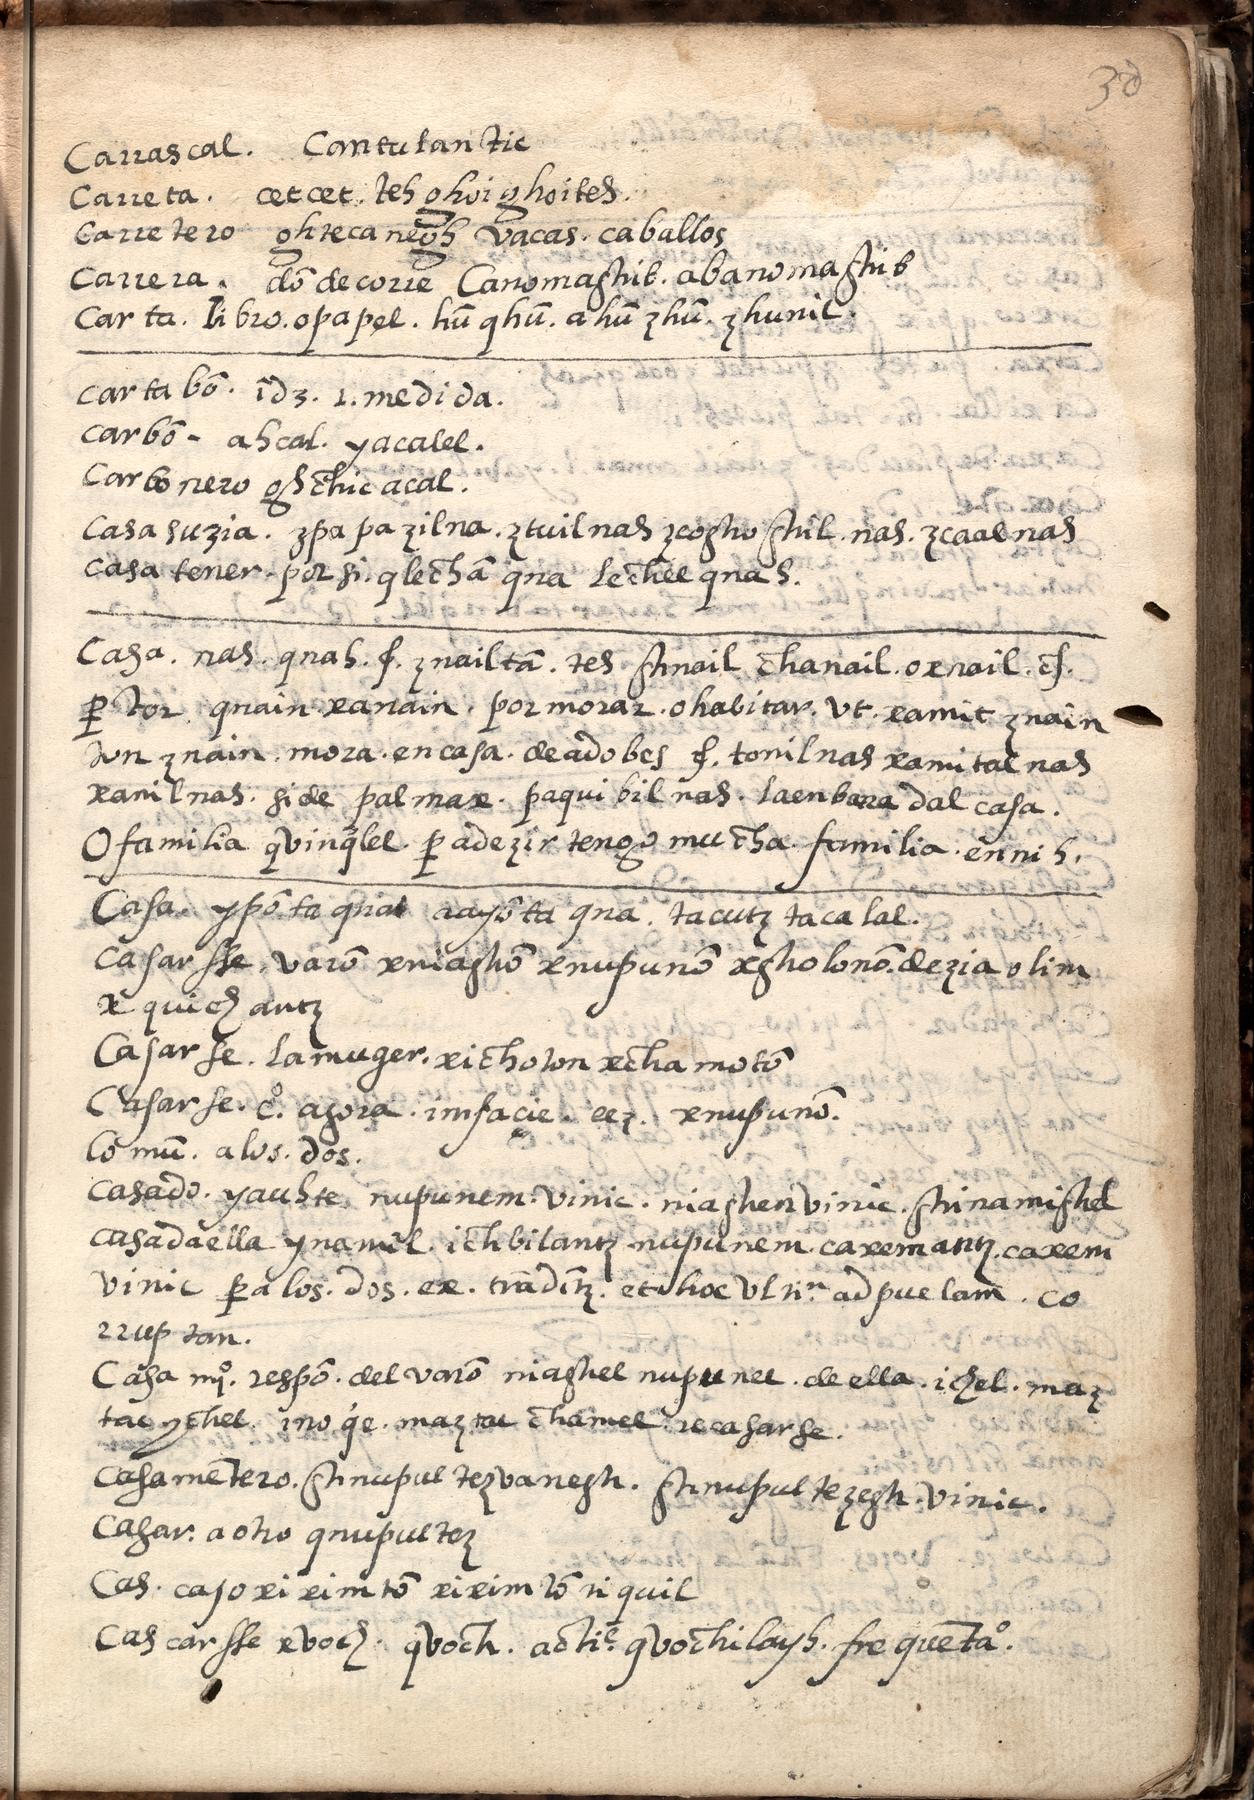 38
Carrascal. Cantulantic
Carreta. cetcet. teh ghoighoiteh.
Carretero ghtecanegh vacas. caballos
Carrera. dõde corre Canomashib. abanomashib
Carta. libro. o papel. hũ qhũ. ahũ zhũ. zhunil.
cartabõ. idz. 1. medida.
carbõ - ahcal. yacalel.
Carbonero ghchicacal.
Casa suzia. zpapazilna. ztuilnah zcoghoshil. nah. zcaalnah
casa tener. por si. qlechã qna lechel qnah.
Casa. nah. qnah. f. znailtã. teh shnail chanail. oxnail. cf.
p̱ tor qnain xanain. por morar. o habitar. vt. xamit znain
Jun znain. mora. en casa. de adobes f. tonilnah xamitalnah
xanilnah. si de palmax. paquibilnah. la enbarradal casa.
O familia qvinq̃lel. p̱a dezir tengo mucha familia. ennih.
Casa. ypõta qnal aayõta qna. tacutz tacalal.
casarsse. varõ xniaghõ xnupunõ xgholonõ. dezia olim
x quich antz
Casarse. la muger. xicholon xchamotõ
Casarse. cº. agora. imfaçie. eez. xnupunõ.
comũ. a los. dos.
casado. yauhte nupunem. vinic. niaghen vinic. shinamighel
casada ella ynamil. ichbilantz nupunem. caxemantz. caxem
vinic p̱a los. dos. ex. trãditz. et hoc vltiᵐ ad puelam. co
rruptan.
Casamiº. respõ. del varõ niaghel nupunel. de ella. ichel. maz
tac ychel. ino q̃e. maztac chamel recasarse.
casamẽtero. shnupultezvanegh. shnupultezegh. vinic.
casar. a otro qnupultez
Cas. caso xiximtõ xiximtõ ti quil
Cascarsse xvoch. qvoch. actiᵉ. qvochilayh. frequẽtaº.